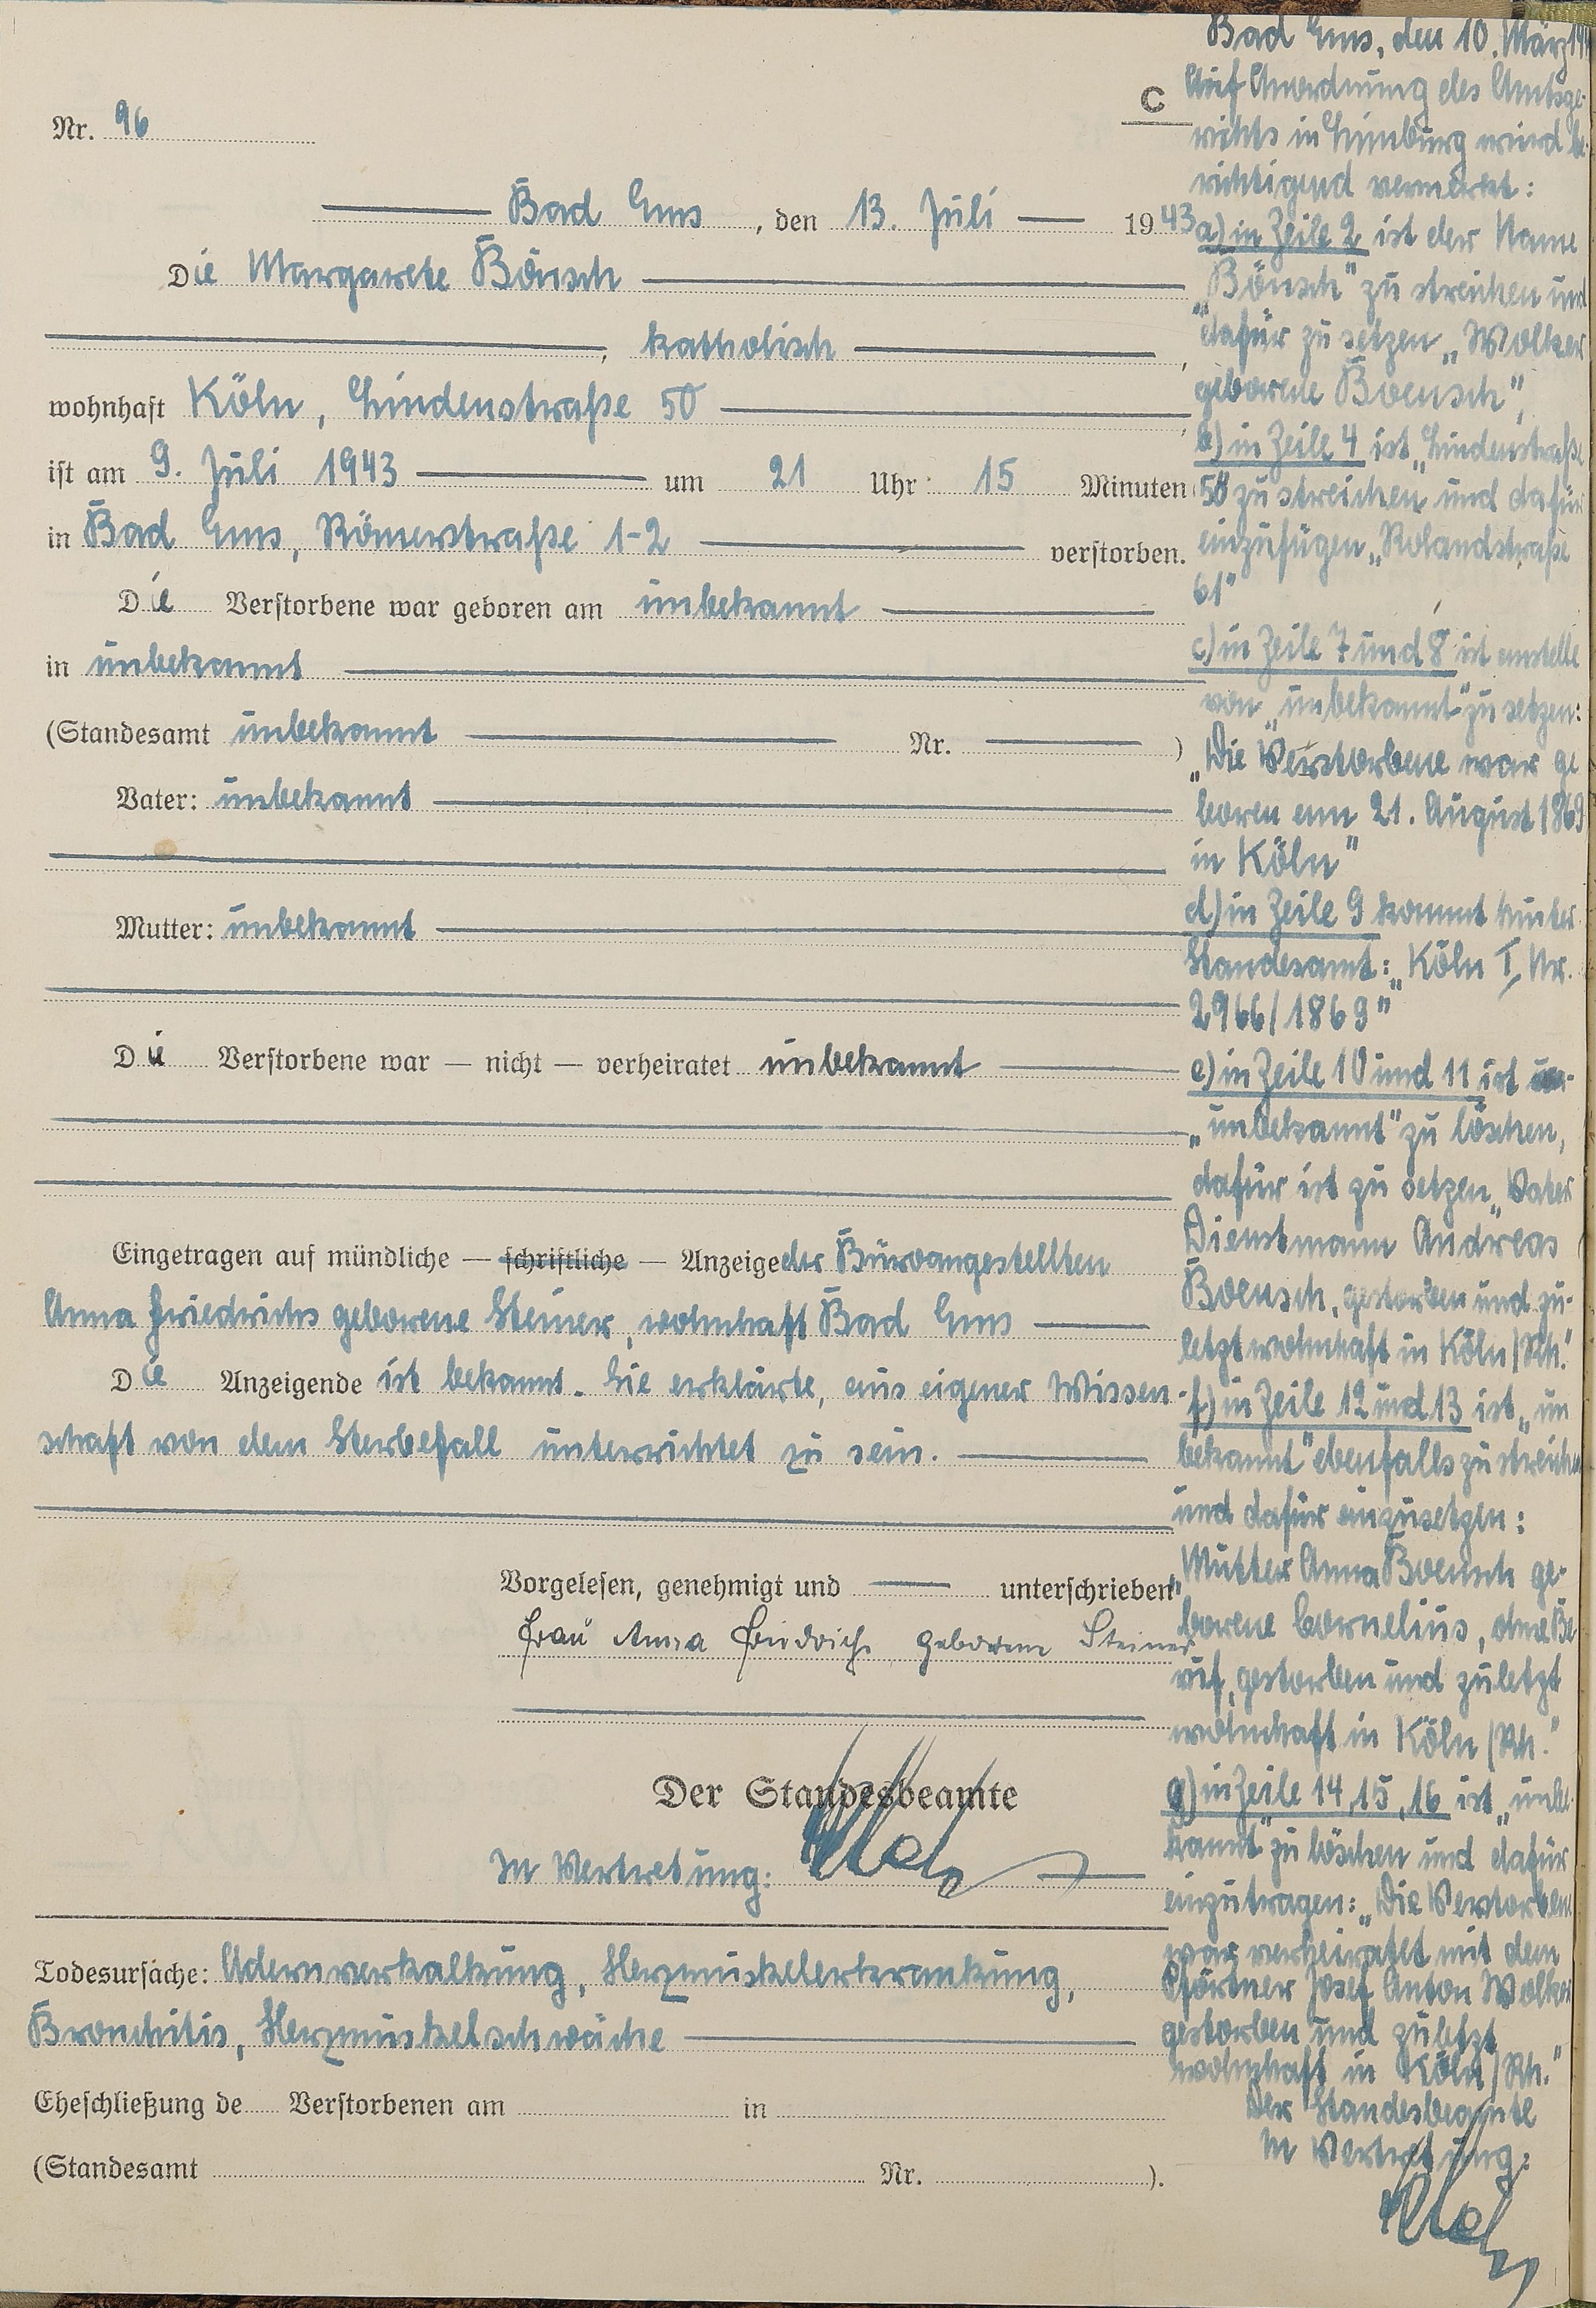 C
Nr. 96
Bad Ems, den 13. Juli 1943
Die Margarete Bönsch
, katholisch ,
wohnhaft Köln, Lindenstraße 50
ist am 9. Juli 1943 um 21 Uhr 15 Minuten
in Bad Ems, Römerstraße 1-2 verstorben.
Die Verstorbene war geboren am unbekannt
in unbekannt
(Standesamt unbekannt Nr. )
Vater: unbekannt
Mutter: unbekannt
Die Verstorbene war — nicht — verheiratet unbekannt
Eingetragen auf mündliche — schriftliche — Anzeige der Büroangestellten
Anna Friedrichs geborene Steiner, wohnhaft Bad Ems
Die Anzeigende ist bekannt. Sie erklärte, aus eigener Wissen-
schaft von dem Sterbefall unterrichtet zu sein.
Vorgelesen, genehmigt und unterschrieben
Frau Anna Friedrichs geborene Steiner
Der Standesbeamte
In Vertretung:
Todesursache: Adernverkalkung, Herzmuskelerkrankung,
Bronchitis, Herzmuskelschwäche
Eheschließung de Verstorbenen am in
(Standesamt Nr. ).
Bad Ems, den 10. März
Auf Anordnung des Amtsge-
richts in Limburg wird be-
richtigend vermerkt:
a) in Zeile 2 ist der Name
„Bönsch" zu streichen und
dafür zu setzen „Wolker
geborene Boensch",
b) in Zeile 4 ist „Lindenstraße
50 zu streichen und dafür
einzufügen „Rolandstraße
61"
c) in Zeile 7 und 8 ist anstelle
von „unbekannt" zu setzen:
„Die Verstorbene war ge
boren am 21. August 1869
in Köln"
d) in Zeile 9 kommt hinter
Standesamt: „Köln I, Nr.
2966/1869"
e) in Zeile 10 und 11 ist
„unbekannt" zu löschen,
dafür ist zu setzen „Vater
Dienstmann Andreas
Boensch, gestorben und zu-
letzt wohnhaft in Köln/Rh."
f) in Zeile 12 und 13 ist „un
bekannt" ebenfalls zu streichen
und dafür einzusetzen:
„Mutter Anna Boensch ge-
borene Cornelius, ohne Be-
ruf, gestorben und zuletzt
wohnhaft in Köln/Rh."
g) in Zeile 14, 15, 16 ist „unbe-
kannt" zu löschen und dafür
einzutragen: „Die Verstorbene
war verheiratet mit dem
Pförtner Josef Anton Wolker
gestorben und zuletzt
wohnhaft in Köln/Rh."
Der Standesbeamte
In Vertretung: